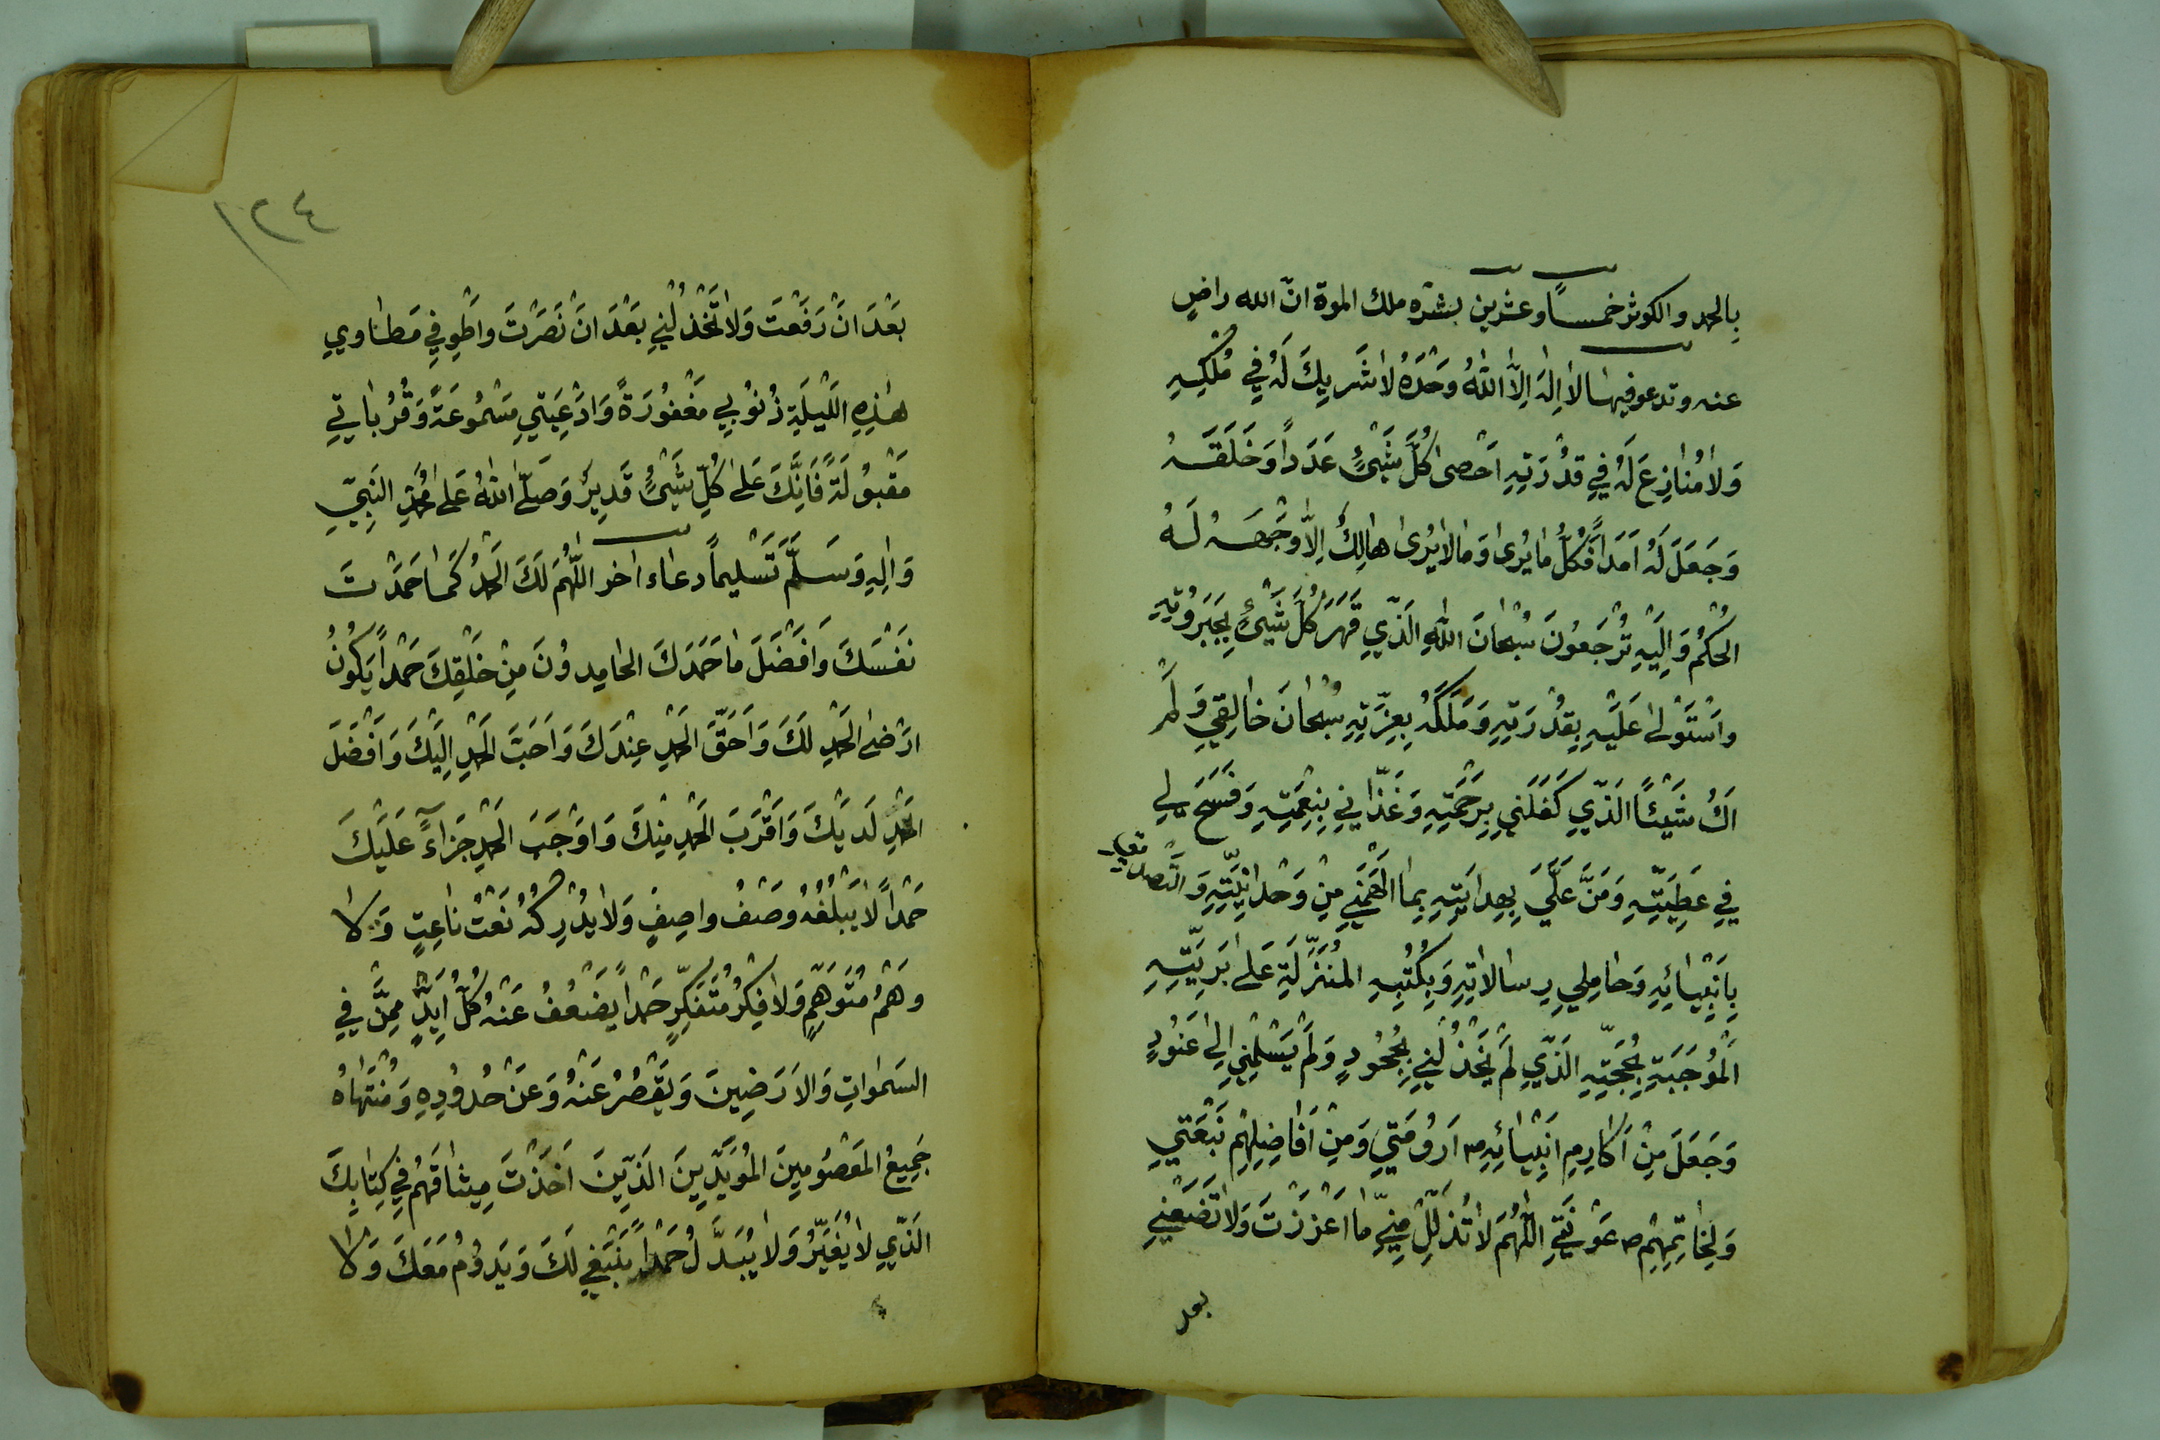 بِالحمد والكوثر خمساً وعشرين بشّره ملك الموة انّ الله راضٍ
عنه وتدعو فيها لاٰ اِلٰهَ اِلاَّ اللهُ وَحْدَهُ لاٰ شَرِيكَ لَهُ فِي مُلْكِهِ
وَلاٰ مُنٰازِعَ لَهُ فِي قُدْرَتِهِ اَحْصىٰ كُلَّ شَيْئٍ عَدَداً وَخَلَقَهُ
وَجَعَلَ لَهُ اَمَداً فَكُلُّ مٰا يُرىٰ وَمٰا لاٰ يُرىٰ هٰالِكٌ اِلاّٰ وَجْهَهُ لَهُ
الْحُكْمُ وَاِلَيْهِ تُرْجَعُونَ سُبْحٰانَ اللهِ الَّذِي قَهَرَ كُلَّ شَيْئٍ بِجَبَرُوتِهِ
وَاسْتَوْلىٰ عَلَيْهِ بِقُدْرَتِهِ وَمَلَكَهُ بِعِزَّتِهِ سُبْحٰانَ خٰالِقِي وَلَمْ
اَكُ شَيْئاً الَّذِي كَفَلَنِي بِرَحْمَتِهِ وَغَذّٰانِي بِنِعْمَتِهِ وَفَسَحَ لِي
فِي عَطِيَّتِهِ وَمَنَّ عَلَيَّ بِهِدٰايَتِهِ بِمٰا اَلْهَمَنِي مِنْ وَحْدٰانِيَّتِهِ وَالتَّصْدِيقِ
بِاَنْبِيٰائِهِ وَحٰامِلِي رِسٰالاٰتِهِ وَبِكُتُبِهِ المُنْزَلَةِ عَلىٰ بَرِيَّتِهِ
الْمُوجَبَةِ بِحُجَّتِهِ الَّذِي لَمْ يَخْذُلْنِي بِجُحُودٍ وَلَمْ يُسْلِمْنِي اِلىٰ عَنُودٍ
وَجَعَلَ مِنْ اَكٰارِمِ اَنْبِيٰائِهِ ص اَرُومَتِي وَمِنْ اَفٰاضِلِهِمْ نَبْعَتِي
وَلِخٰاتِمِهِمْ ص عَوْنَتِي اللّٰهُمَّ لاٰ تُذَلِّلْ مِنِّي مٰا اَعْزَزْتَ وَلاٰ تَضَعْنِي
بعد
١٢٤
بَعْدَ اَنْ رَفَعْتَ وَلاٰ تَخْذُلْنِي بَعْدَ اَنْ نَصَرْتَ وَاطْوِ فِي مَطٰاوِي
هٰذِهِ اللَّيْلَةِ ذُنُوبِي مَغْفُورَةً وَاَدْعِيَتِي مَسْمُوعَةً وَقُرُبٰاتِي
مَقْبُولَةً فَاِنَّكَ عَلىٰ كُلِّ شَيْئٍ قَدِيرٌ وَصَلَّى اللهُ عَلىٰ مُحَمَّدٍ النَّبِيِّ
وَاٰلِهِ وَسَلَّمَ تَسْلِيماً دعاء اخر اللّٰهُمَّ لَكَ الْحَمْدُ كَمٰا حَمَدْتَ
نَفْسَكَ وَاَفْضَلَ مٰا حَمَدَكَ الحٰامِدُونَ مِنْ خَلْقِكَ حَمْداً يَكُونُ
اَرْضىٰ الْحَمْدِ لَكَ وَاَحَقَّ الْحَمْدِ عِنْدَكَ وَاَحَبَّ الْحَمْدِ اِلَيْكَ وَاَفْضَلَ
الْحَمْدِ لَدَيْكَ وَاَقْرَبَ الْحَمْدِ مِنْكَ وَاَوْجَبَ الْحَمْدِ جَزٰاءً عَلَيْكَ
حَمْداً لاٰ يَبْلُغُهُ وَصْفُ وٰاصِفٍ وَلاٰ يُدْرِكُهُ نَعْتُ نٰاعِتٍ وَلاٰ
وَهْمُ مُتَوَهِّمٍ وَلاٰ فِكْرُ مُتَفَكِّرٍ حَمْداً يَضْعُفُ عَنْهُ كُلُّ اَيِّدٍ مِمَّنْ فِي
السَّمٰوٰاتِ وَالاَرَضِينَ وَيَقْصُرُ عَنْهُ وَعَنْ حُدُودِهِ وَمُنْتَهٰاهُ
جَمِيعُ الْمَعْصُومِينَ الْمُؤَيَّدِينَ الَّذِينَ اَخَذْتَ مِيثٰاقَهُمْ فِي كِتٰابِكَ
الَّذِي لاٰ يُغَيَّرُ وَلاٰ يُبَدَّلُ حَمْداً يَنْبَغِي لَكَ وَيَدُومُ مَعَكَ وَلاٰ